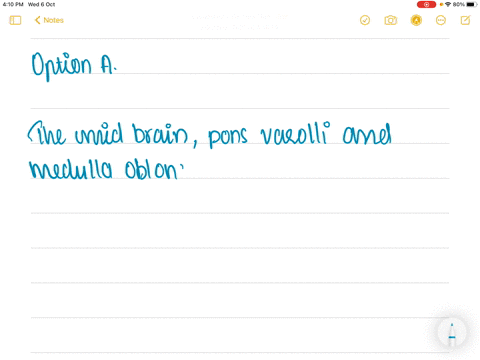 4:10 PM Wed 6 Oct
80%
Notes
Option A.
The mid brain, pons varolli and
medulla oblon